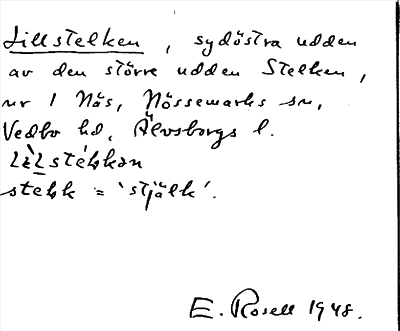 Lillstelken, sydöstra udden
av den större udden Stelken,
nr 1 Näs, Nössemarks sn,
Vedbo hd, Älvsborgs l.
stelk = 'stjälk'.
E. Rosell 1948.